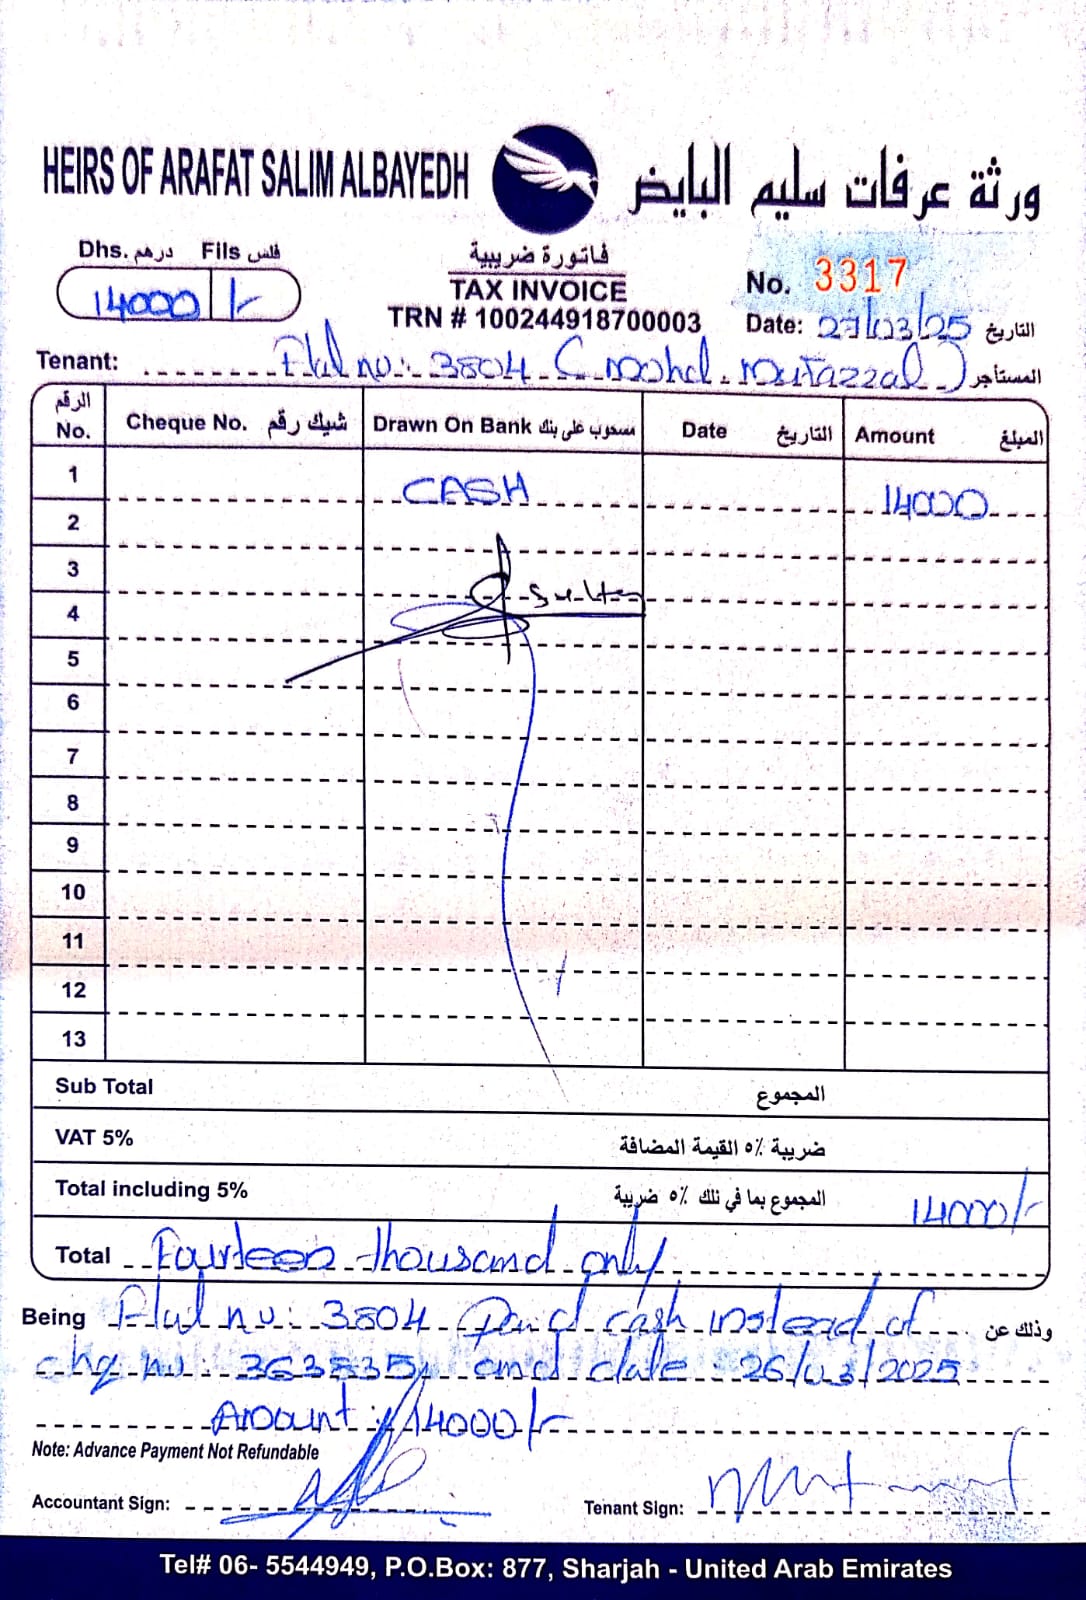 HEIRS OF ARAFAT SALIM ALBAYEDH ورثة عرفات سليم البايض
Dhs. درهم Fils فلس
14000 /-
فاتورة ضريبية
TAX INVOICE
TRN # 100244918700003
No. 3317
Date: 27/03/25 التاريخ
Tenant: Flat no: 3804 (Mohd. Mufazzal) المستأجر
الرقم No. Cheque No. شيك رقم Drawn On Bank مسحوب على بنك Date التاريخ Amount المبلغ
1 CASH 14000
2
3
4
5
6
7
8
9
10
11
12
13
Sub Total المجموع
VAT 5% ضريبة ٥٪ القيمة المضافة
Total including 5% المجموع بما في تلك ٥٪ ضريبة 14000/-
Total Fourteen thousand only
Being Flat no: 3804 Paid cash instead of وذلك عن
chq no: and date: 26/03/2025
Amount: 14000/-
Note: Advance Payment Not Refundable
Accountant Sign:
Tenant Sign:
Tel# 06- 5544949, P.O.Box: 877, Sharjah - United Arab Emirates